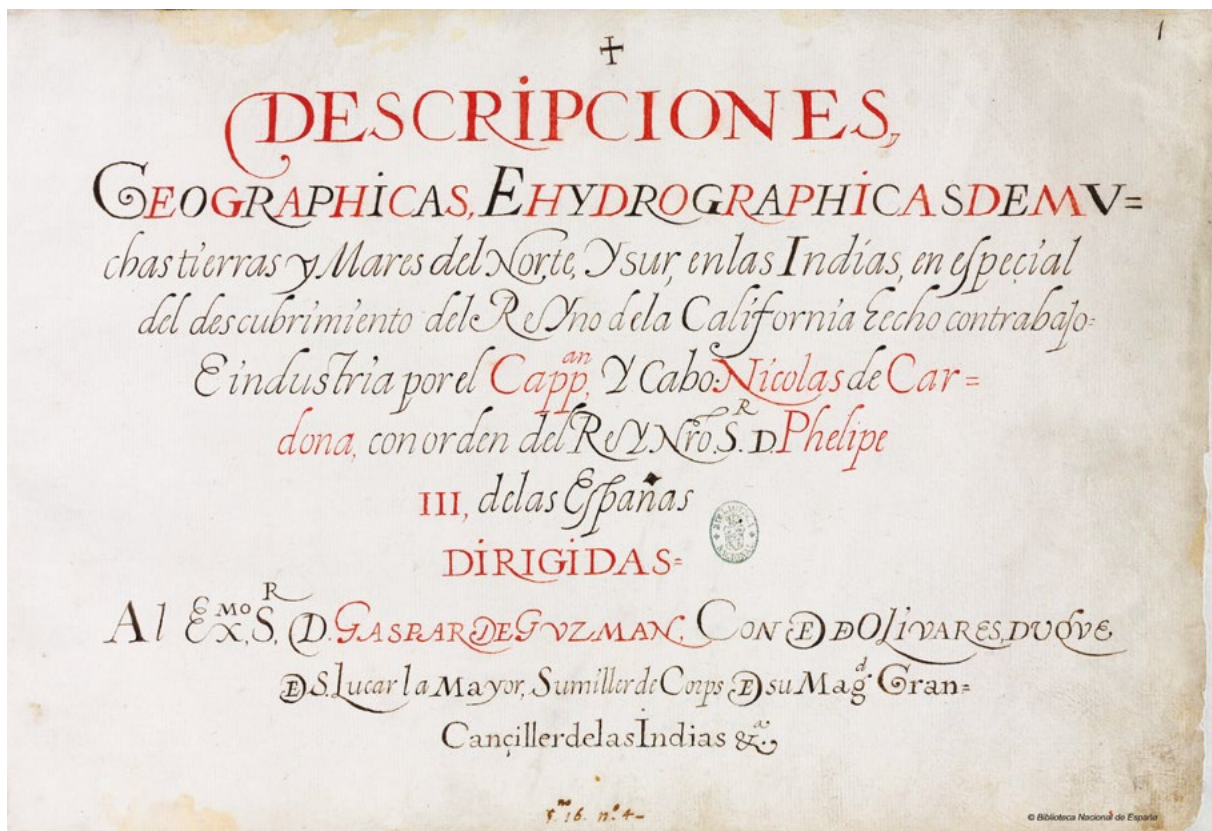 1
+
DESCRIPCIONES,
GEOGRAPHICAS, E HYDROGRAPHICAS DE MV=
chas tierras y Mares del Norte, Y sur, en las Indias, en especial
del descubrimiento del ReYno de la California hecho con trabajo=
E industria por el Cappan, Y Cabo: Nicolas de Car=
dona, con orden del ReY Nro. S.R D. Phelipe
III, de las Españas
DIRIGIDAS=
Al EXMO, S,R D. GASPAR DE GVZMAN, CONDE DE OLIVARES, DVQVE
DE S. Lucar la Mayor, Sumiller de Corps DE su Magd Gran=
Cançiller de las Indias &a.
16. nº 4-
BIBLIOTECA NACIONAL
© Biblioteca Nacional de España